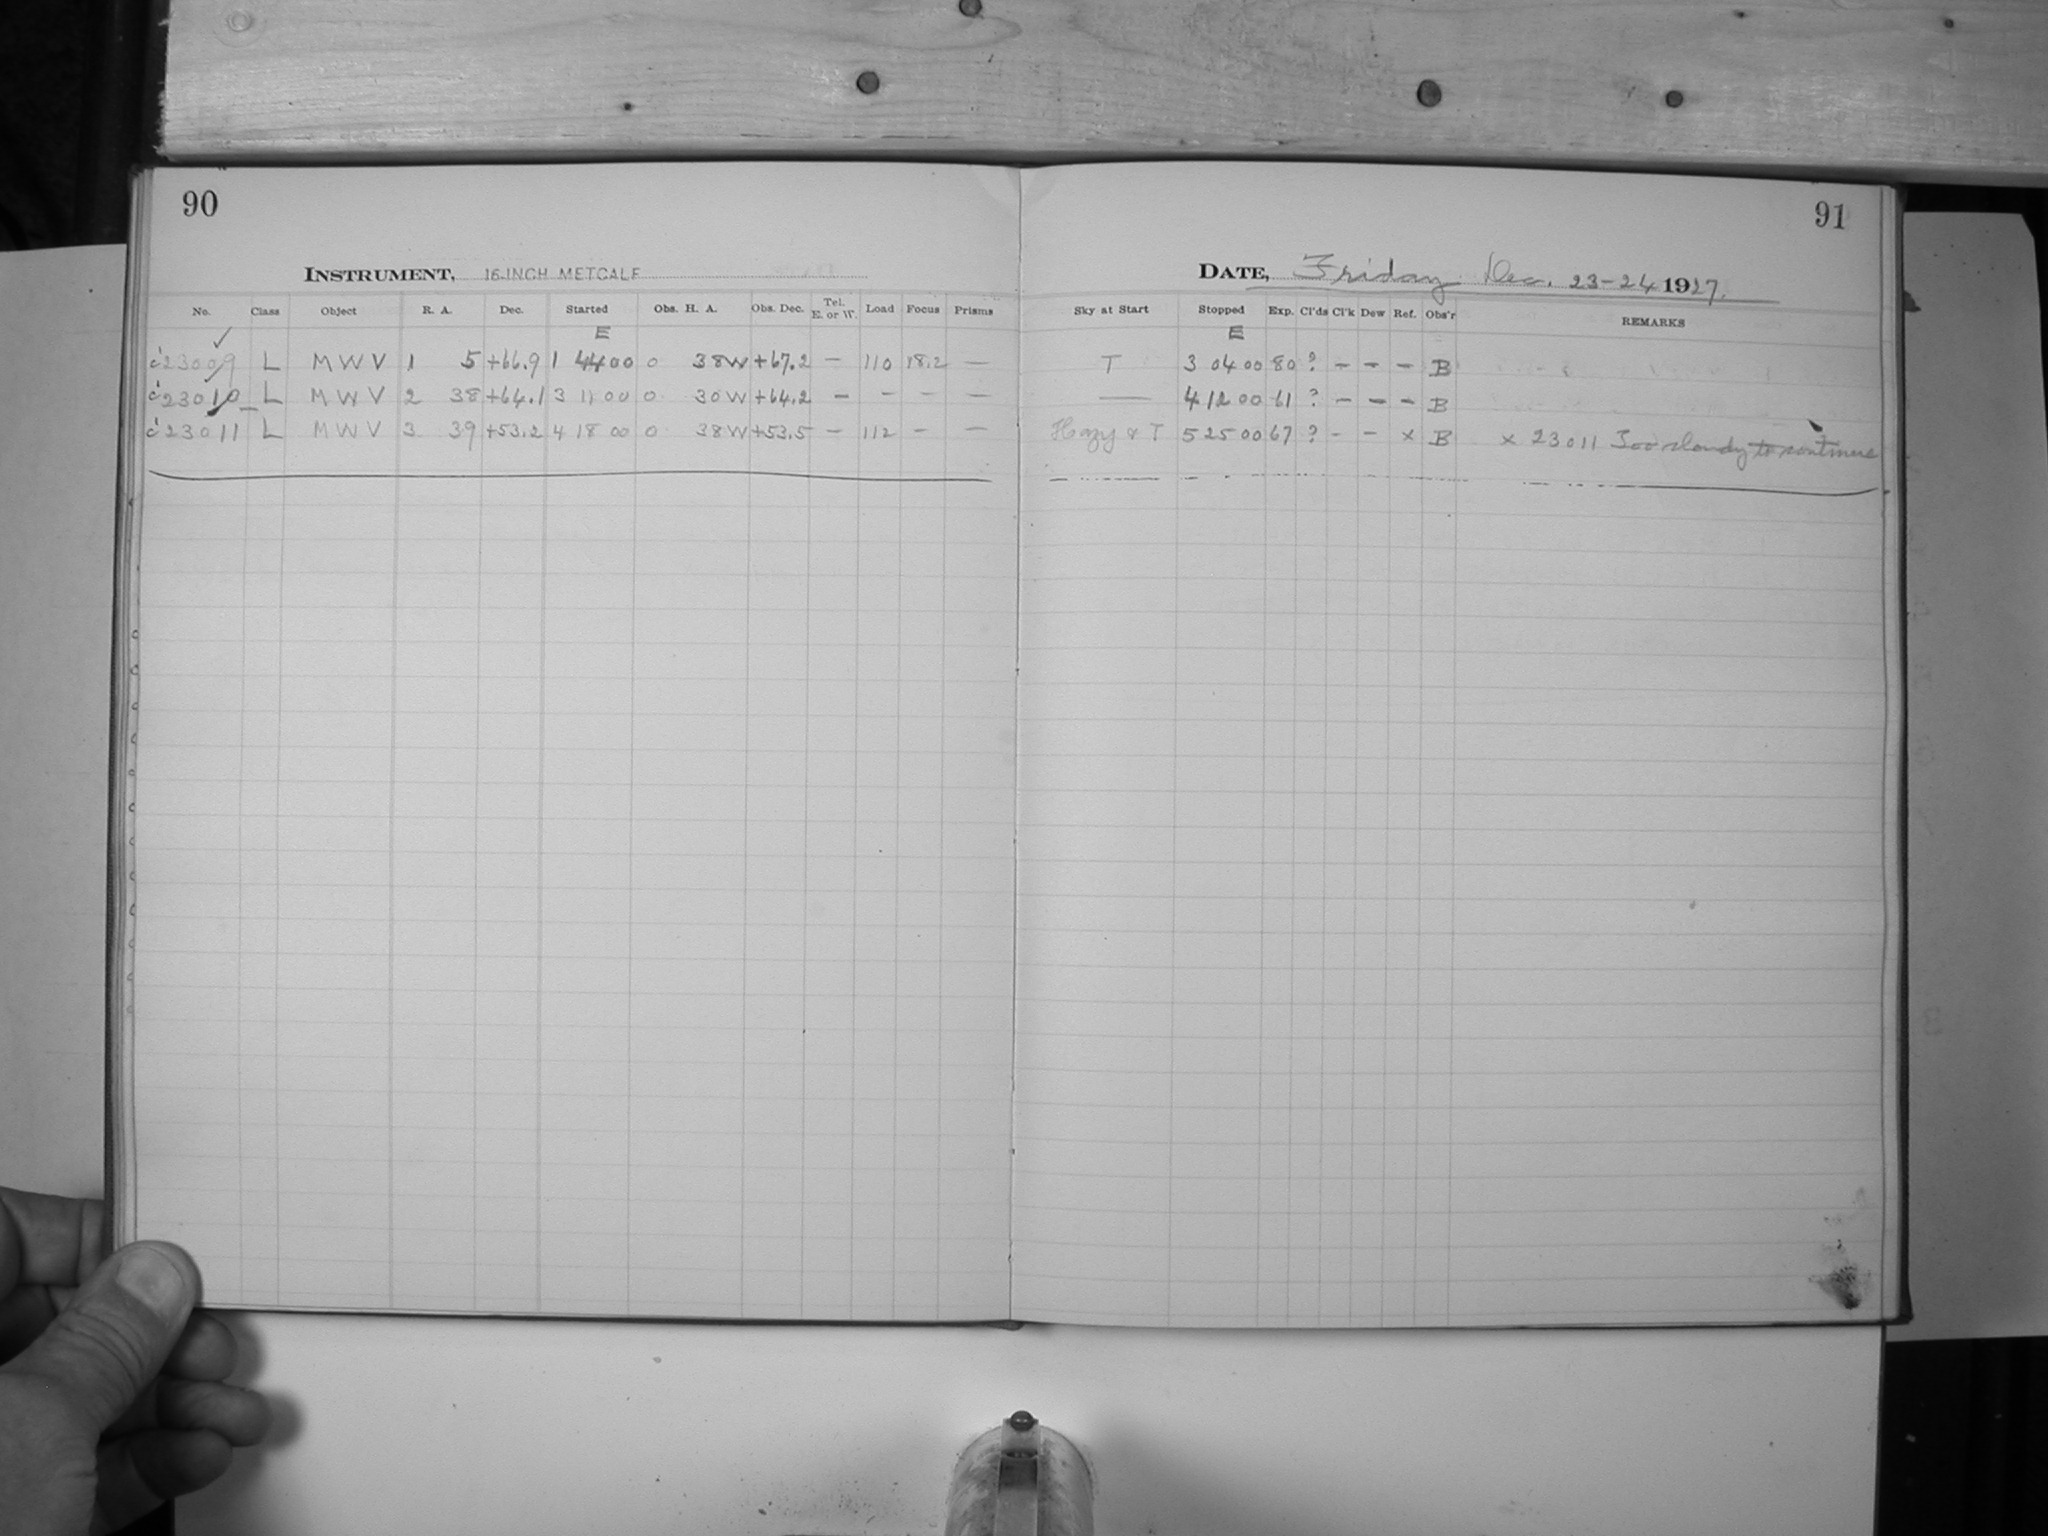 90
INSTRUMENT, 16-INCH METCALF
No. Class Object R. A. Dec. Started Obs. H. A. Obs. Dec. Tel. E. or W. Load Focus Prisms
E
23009 L M W V 1 5 +66.9 1 44 00 0 38W +67.2 — 110 18.2 —
23010 L M W V 2 38 +64.1 3 11 00 0 30W +64.2 — — — —
23011 L M W V 3 39 +53.2 4 18 00 0 38W +53.5 — 112 — —
91
DATE, Friday Dec. 23-24 1927.
Sky at Start Stopped Exp. Cl'ds Cl'k Dew Ref. Obs'r REMARKS
E
T 3 04 00 80 ? — — — B
— 4 12 00 61 ? — — — B
Hazy & T 5 25 00 67 ? - — x B x 23011 Too cloudy to continue